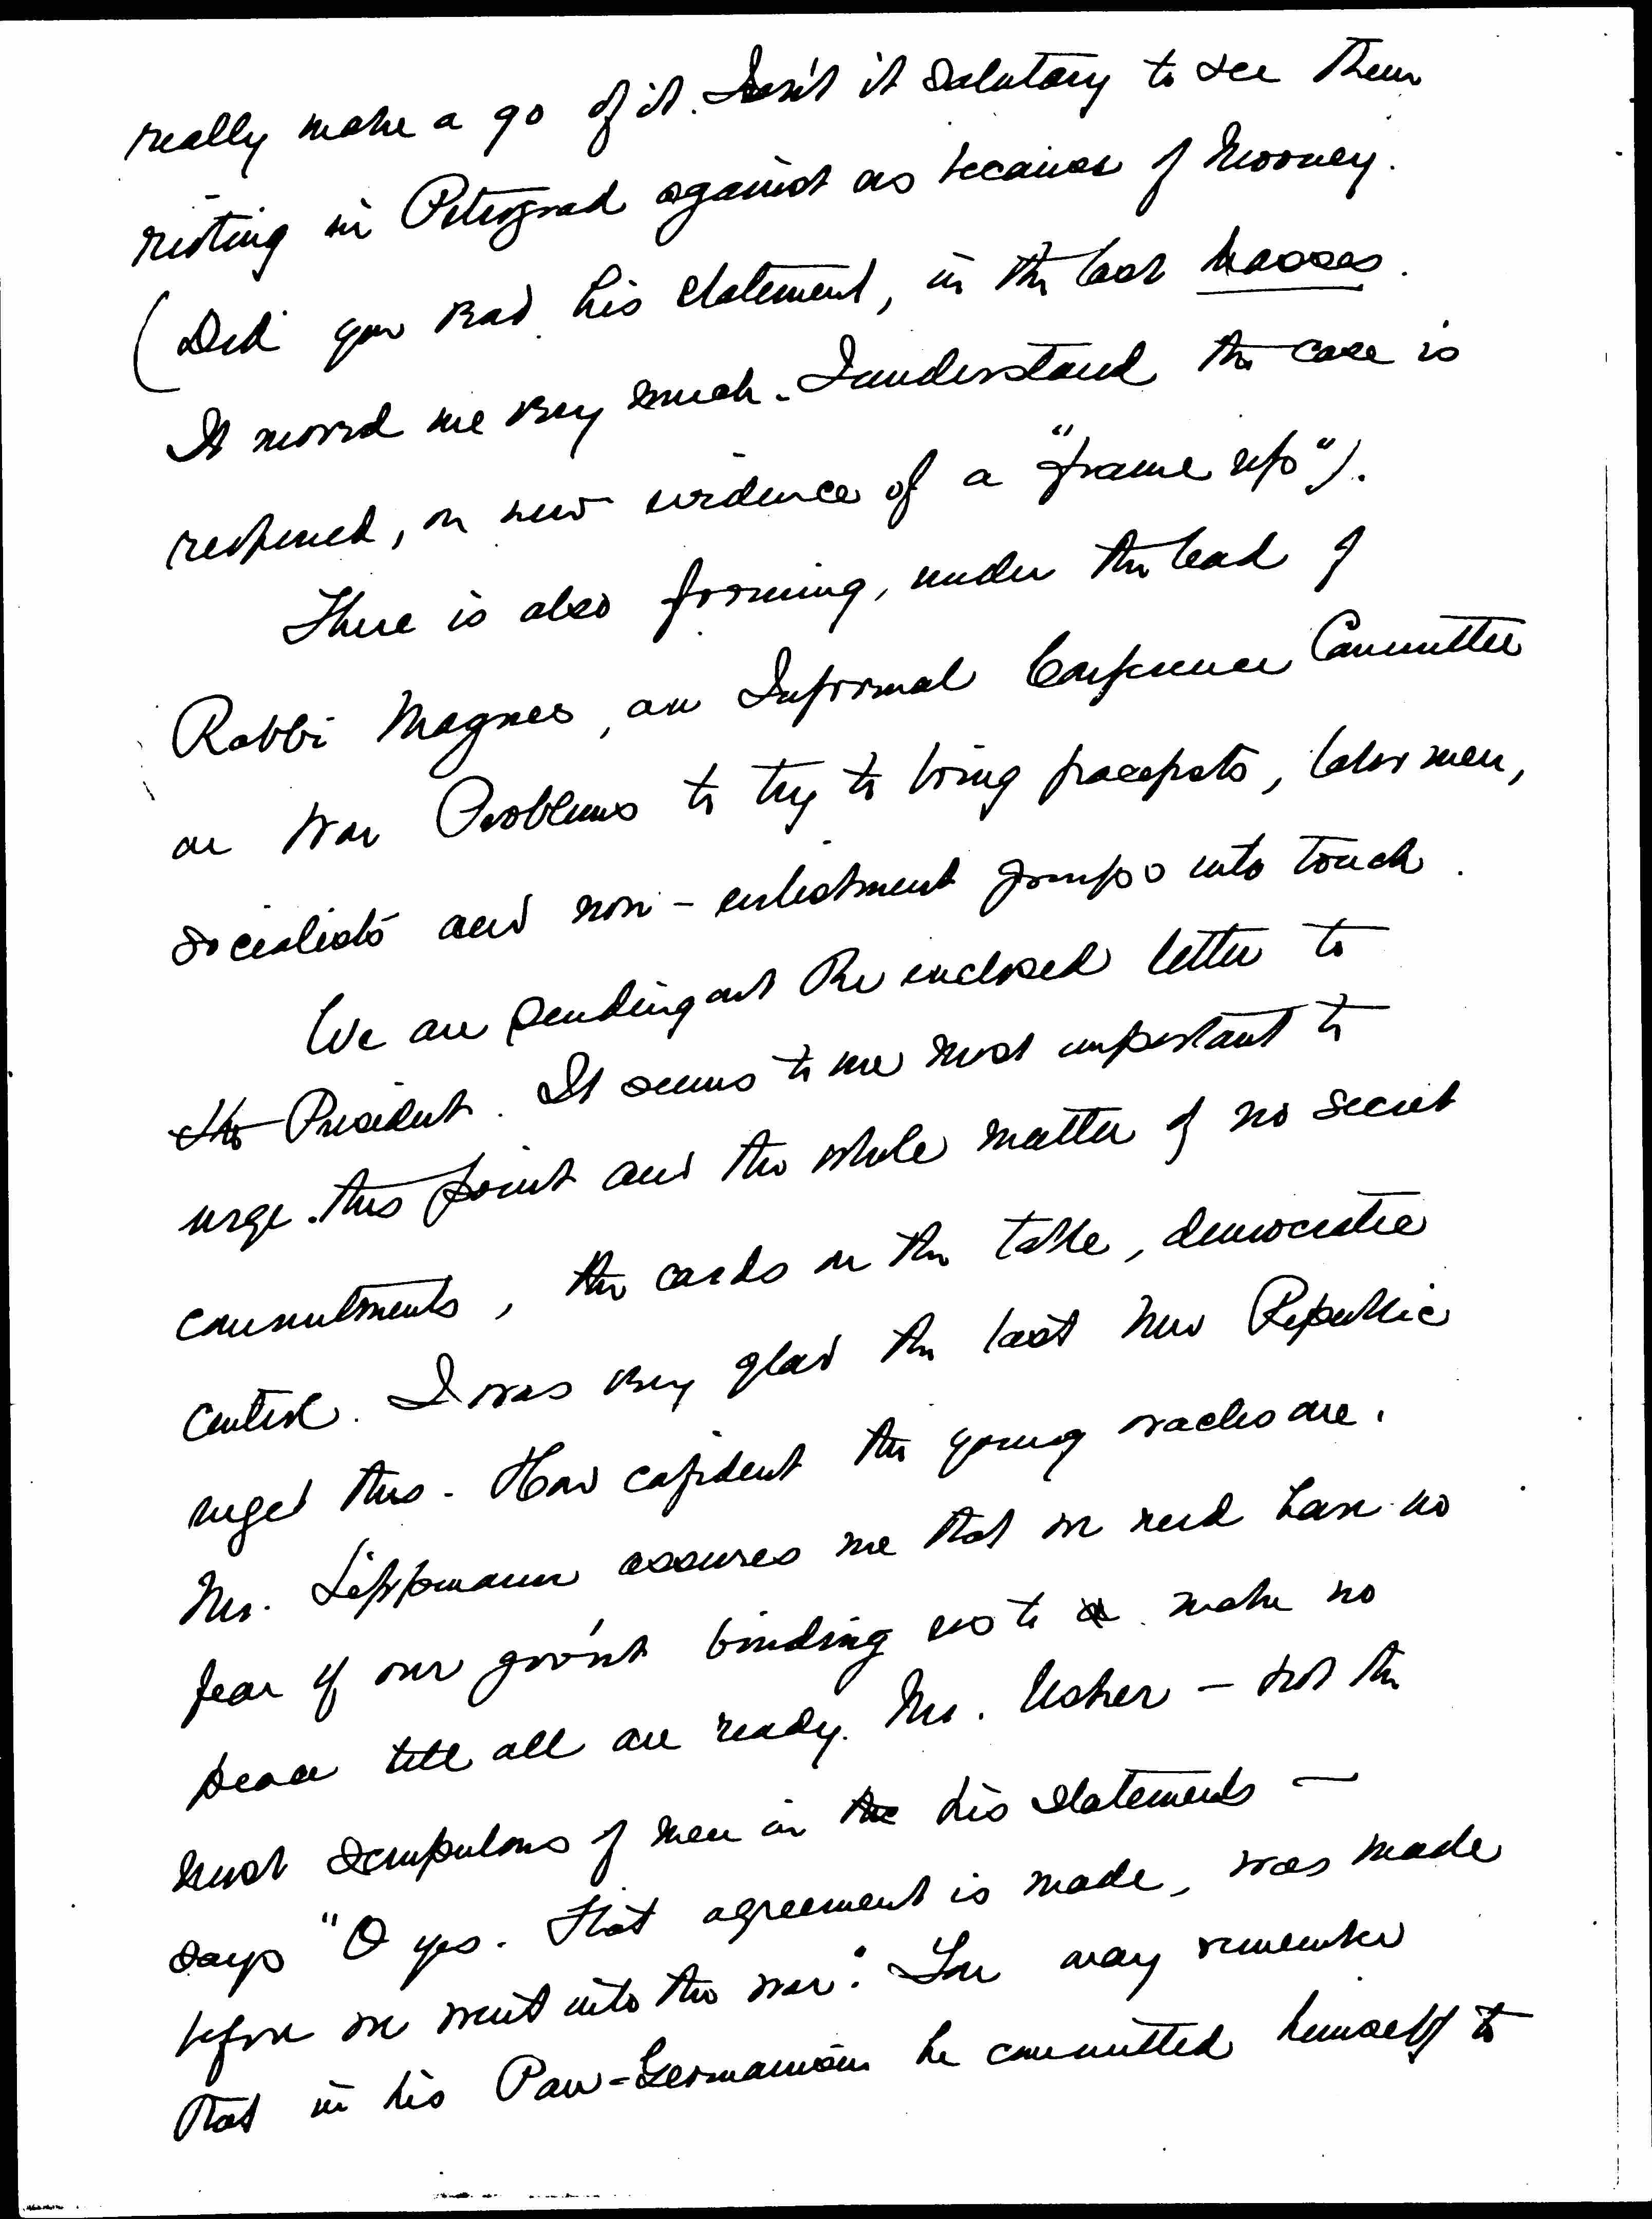 really make a go of it. Isn't it salutary to see them
rioting in Petrograd against us because of Mooney.
(Did you read his statement, in the last Masses.
It moved me very much. I understand the case is
reopened, on new evidence of a "frame up").
There is also forming, under the lead of
Rabbi Magnes, an Informal Conference Committee
on War Problems to try to bring pacifists, labor men,
socialists and non-enlistment groups into touch.
We are sending out the enclosed letter to
the President. It seems to me most important to
urge this point and the whole matter of no secret
commitments, the cards on the table, democratic
control. I was very glad the last New Republic
urged this. How confident the young oracles are.
Mr. Lippmann assures me that we need have no
fear of our gov'nt binding us to make no
peace till all are ready. Mr. Usher - not the
most scrupulous of men in the his statements -
says "O yes. That agreement is made, was made
before we went into the war". You may remember
that in his Pan-Germanism he committed himself to